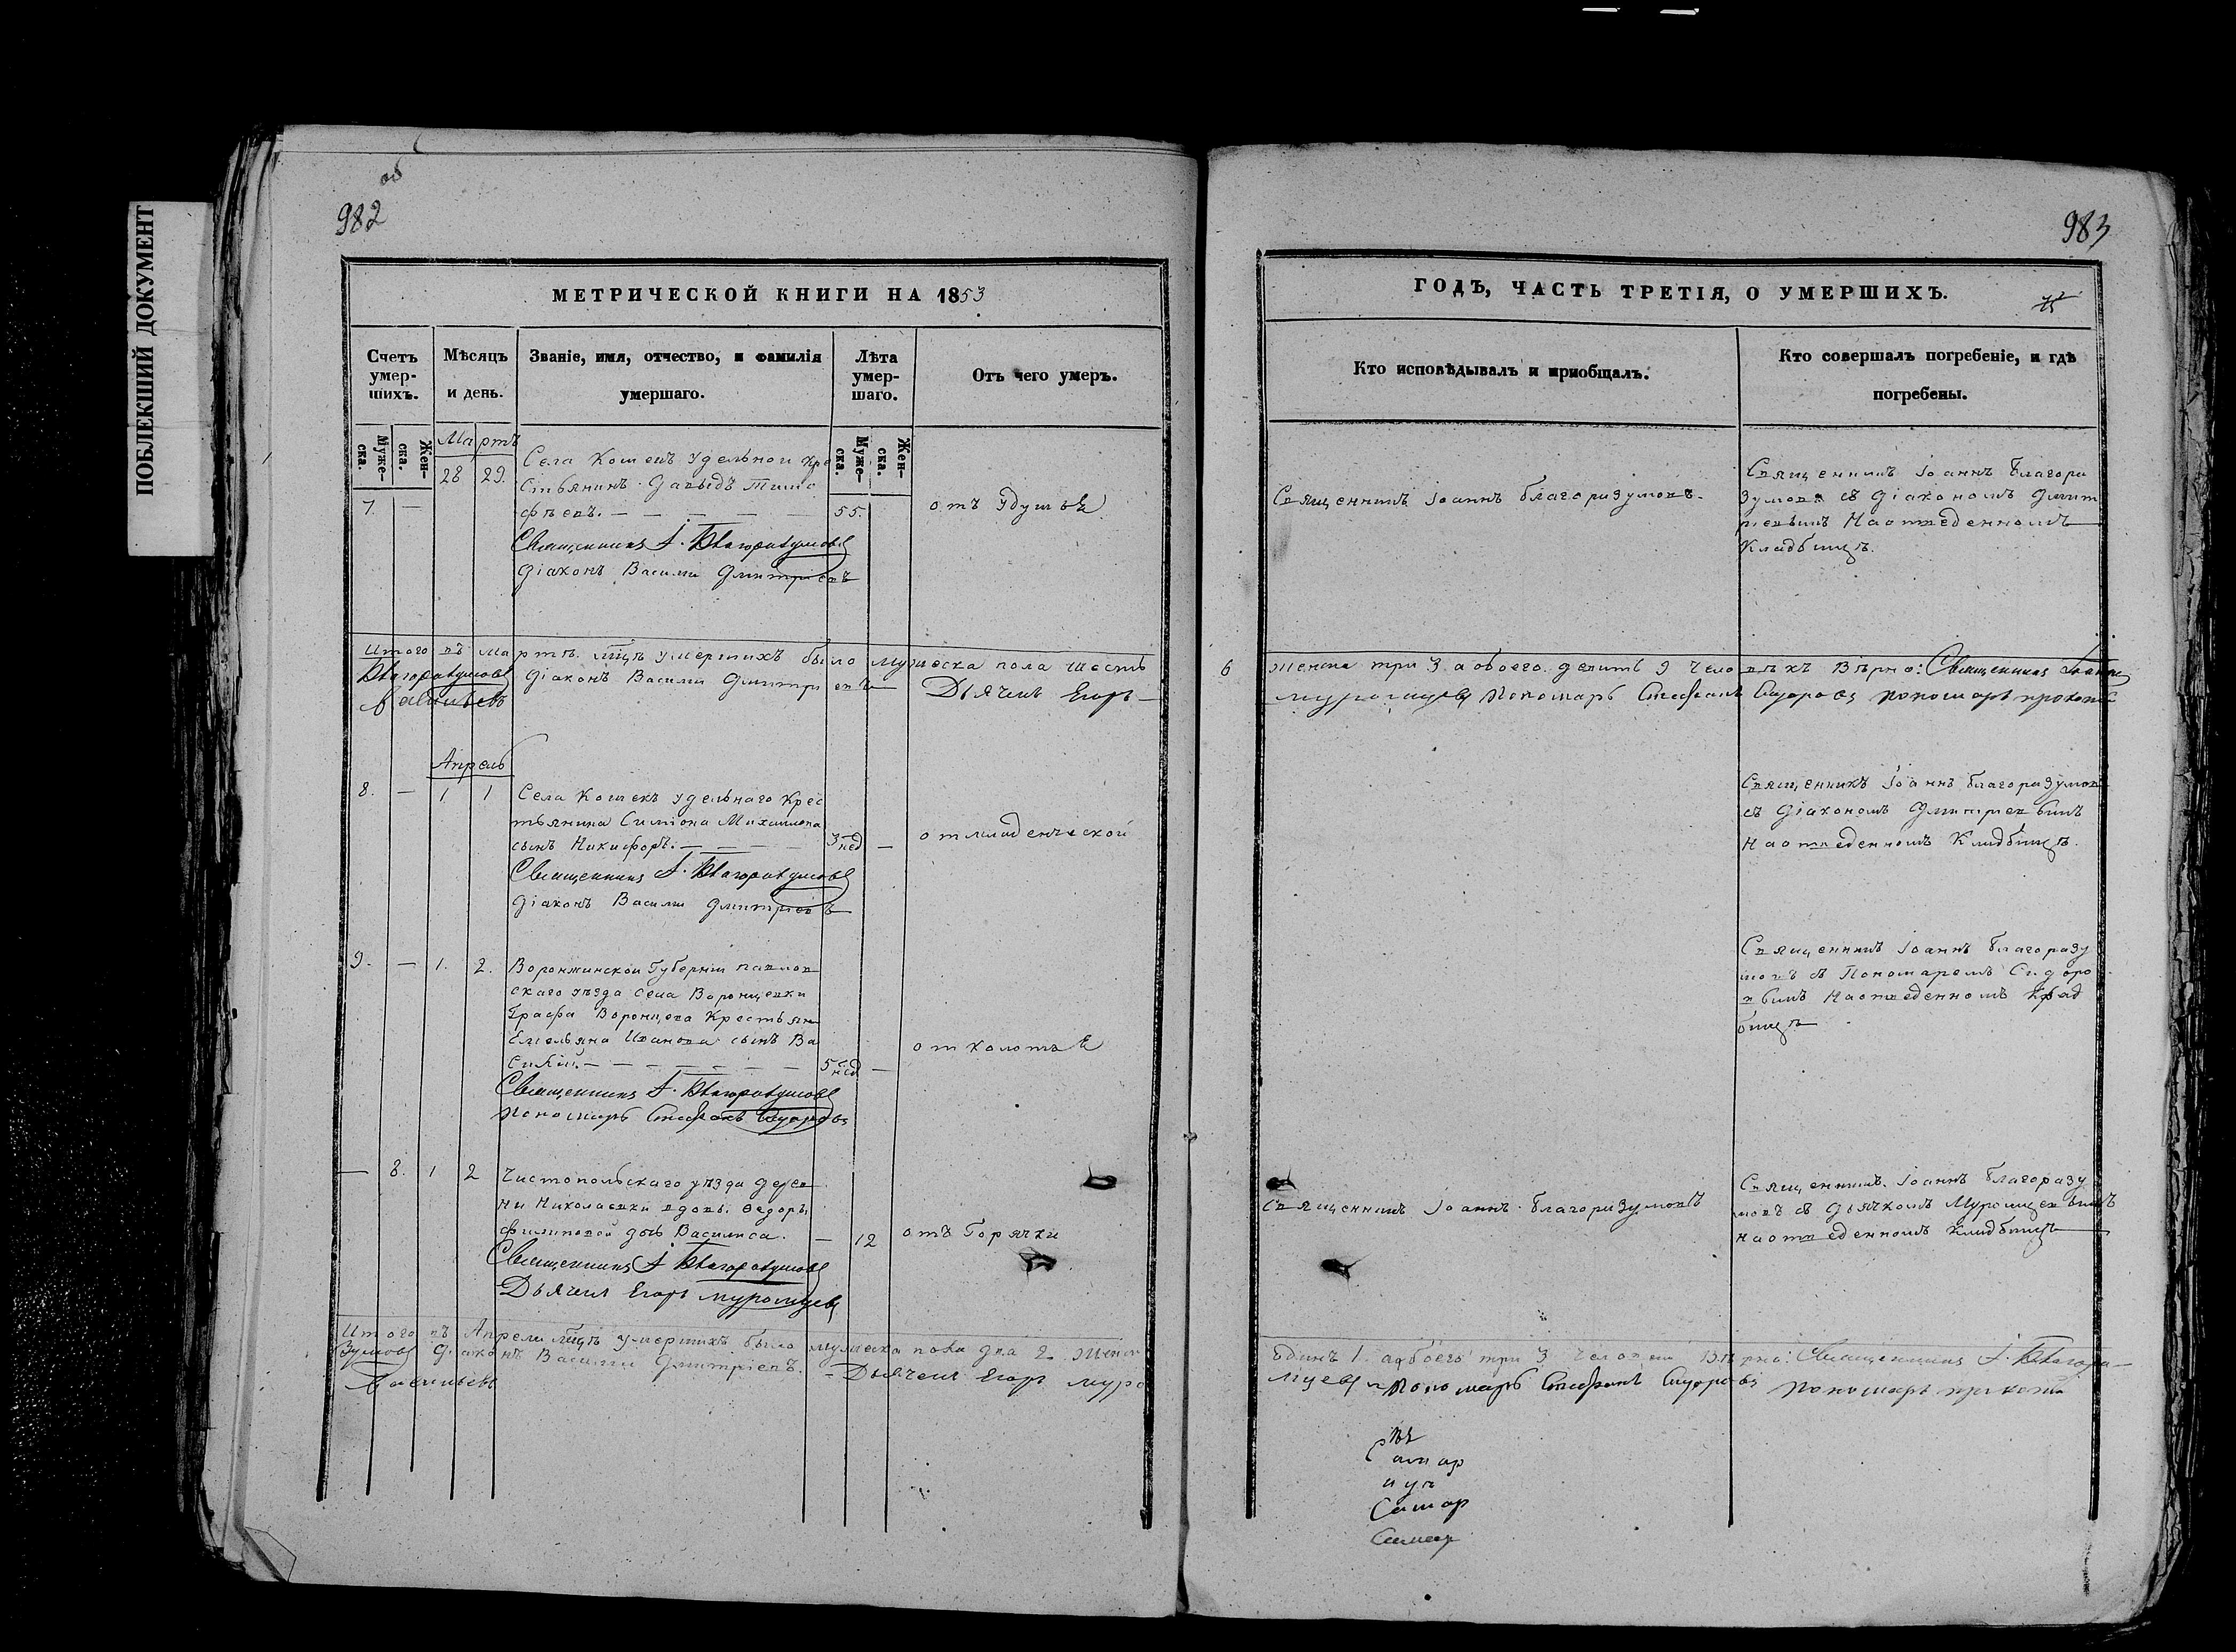 ПОБЛЕКШИЙ ДОКУМЕНТ
об
982
МЕТРИЧЕСКОЙ КНИГИ НА 1853
Счетъ умер-шихъ.
Мѣсяцъ и день.
Званіе, имя, отчество, и фамилія умершаго.
Лѣта умер-шаго.
Отъ чего умеръ.
Муже-ска.
Жен-ска.
Муже-ска.
Жен-ска.
Мартъ
7. — 28 29.
Села Кошекъ удельной кре
стьянинъ Давыдъ Тимо
фѣевъ. — — — — 55. отъ удушья
Священникъ І. Благоразумовъ
Діаконъ Василій Дмитріевъ
Итого въ мартѣ мцѣ умершихъ было мужеска пола шесть
Благоразумовъ Діаконъ Василій Дмитріевъ Дьячекъ Егоръ
Васильевъ
Апрель
8. — 1 1
Села Кошекъ удельнаго крес
тьянина Симіона Михайлова
сынъ Никифоръ. — — — — 3 нед — отмладенческой
Священникъ І. Благоразумовъ
Діаконъ Василій Дмитріевъ
9. — 1. 2.
Воронжинской Губерніи павлов
скаго уѣзда села Воронцевки
Графа Воронцова Крестьян
Емельяна Иванова сынъ Ва
силій. — — — — — — 5 нед — отколотья
Священникъ І. Благоразумовъ
Пономарь Стефанъ Сидоровъ
— 8. 1 2
Чистопольскаго уѣзда дерев
ни Николаевки вдовы Федоры
филиповой дочь Васлиса. — 12 отъ Горячки
Священникъ І Благоразумовъ
Дьячекъ Егоръ Муромцевъ
Итого въ Апрели мцѣ умершихъ было мужеска пола два 2. женск
зумовъ Діаконъ Василій Дмитріевъ. Дьячекъ Егоръ муро
Васильевъ
983
ГОДЪ, ЧАСТЬ ТРЕТІЯ, О УМЕРШИХЪ.
Кто исповѣдывалъ и пріобщалъ.
Кто совершалъ погребеніе, и гдѣ погребены.
Священникъ Іоаннъ Благоразумовъ.
Священникъ Іоаннъ Благора
зумовъ съ Діакономъ Дмит
ріевымъ Наотведенномъ
Кладбищѣ.
6 женска три 3 а обоего девить 9 человѣкъ Вѣрно: Священникъ Іоаннъ
муромцевъ Пономарь Стефанъ Сидоровъ пономарь прокопій
Священникъ Іоаннъ Благоразумовъ
съ Діакономъ Дмитріевымъ
Наотведенномъ Кладбищѣ.
Священникъ Іоаннъ Благоразу
мовъ съ Пономаремъ Сидоро
вымъ Наотведенномъ Клад
бищѣ
Священникъ Іоаннъ Благоразумовъ
Священникъ Іоаннъ Благоразу
мовъ съ дьячкомъ Муромцевымъ
наотведенномъ Кладбищѣ
Единъ 1. аобоего три 3 человѣки Вѣрно: Священникъ І. Благора-
мцевъ Пономарь Стефанъ Сидоровъ пономарь прокопій
Самар
Самар